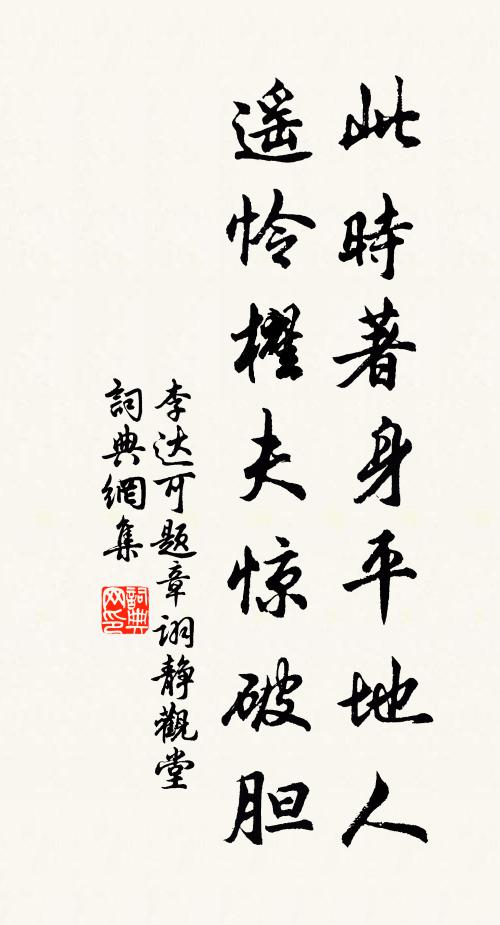 此時著身平地人
遥怜櫂夫惊破胆
李达可题章诩静觀堂
詞典網集
詞典网印